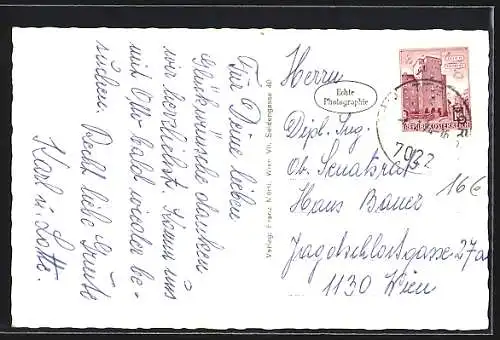 Für Deine lieben
Glückwünsche danken
wir herzlichst. Komm uns
mit Otto bald wieder be-
suchen. Recht liebe Grüße
Karl u. Lotte.
Verlag: Franz Mörtl, Wien VII, Seidengasse 40
Herrn
Echte
Photographie
Dipl. Ing.
Ob. Senatsrat
Hans Bauer
Jagdschlossgasse 27a
1130 Wien
REPUBLIK ÖSTERREICH
7092
16€